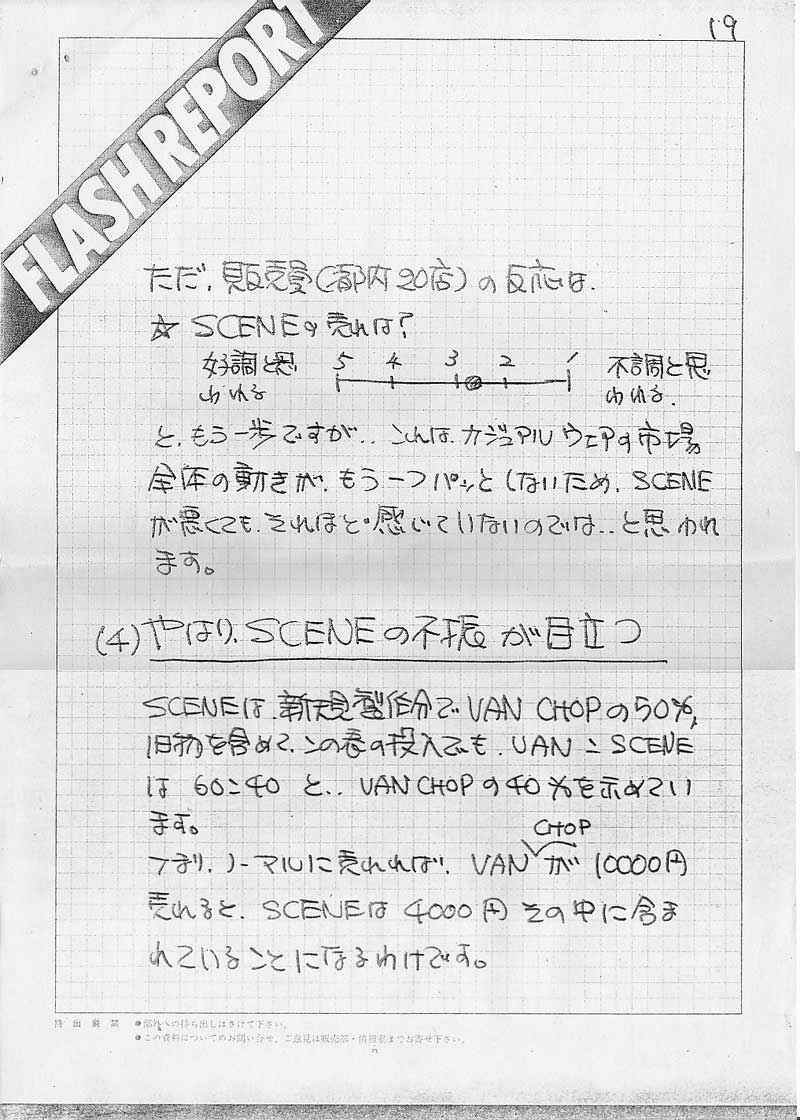 19
FLASH REPORT
ただ、販売員(都内20店)の反応は、
☆ SCENEの売れは?
好調と思われる 5 4 3 2 1 不調と思われる.
と、もう一歩ですが.. これは、カジュアルウェアの市場
全体の動きが、もう一つパッとしないため、SCENE
が悪くても、それほど感じていないのでは..と思われ
ます。
(4) やはり、SCENEの不振が目立つ
SCENEは、新規製作分でVAN CHOPの50%,
旧物を含めて、この春の投入でも、VAN:SCENE
は 60:40 と.. VAN CHOPの40%を示めてい
ます。
つまり、ノーマルに売れれば、VAN CHOP が 10000円
売れると、SCENEは 4000円 その中に含ま
れていることになるわけです。
持出厳禁 ●部外への持ち出しはさけて下さい。
●この資料についてのお問い合せ、ご意見は販売部・情報室までお寄せ下さい。